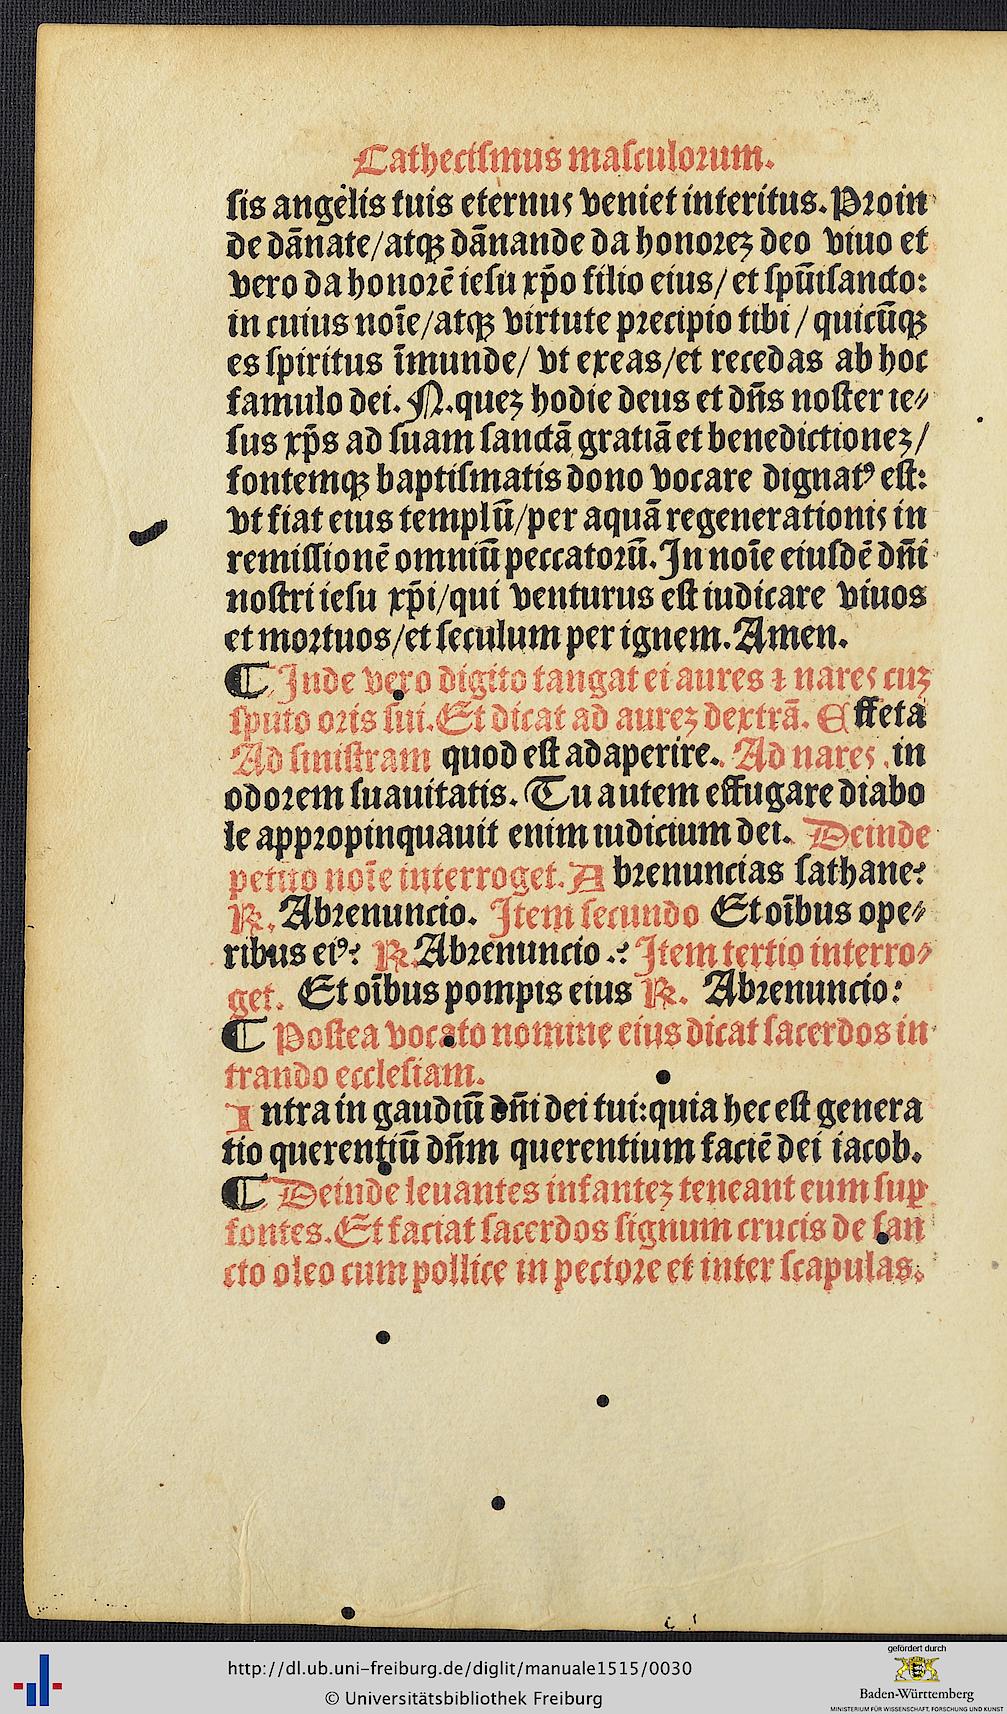 Cathecismus masculorum.
sis angelis tuis eternus veniet interitus. Proin
de dānate/atqꝫ dānande da honoreꝫ deo viuo et
vero da honorē iesu xp̄o filio eius/ et spūisancto:
in cuius noīe/atqꝫ virtute precipio tibi / quicūqꝫ
es spiritus īmunde/ vt exeas/et recedas ab hoc
famulo dei. N. queꝫ hodie deus et dn̄s noster ie⸗
sus xp̄s ad suam sanctā gratiā et benedictioneꝫ/
fontemqꝫ baptismatis dono vocare dignatꝰ est:
vt fiat eius templū/per aquā regenerationis in
remissionē omniū peccatorū. In noīe eiusdē dn̄i
nostri iesu xp̄i/qui venturus est iudicare viuos
et mortuos/et seculum per ignem. Amen.
¶ Inde vero digito tangat ei aures ⁊ nares cuꝫ
sputo oris sui. Et dicat ad aureꝫ dextrā. Effeta
Ad sinistram quod est adaperire. Ad nares. in
odorem suauitatis. Tu autem effugare diabo
le appropinquauit enim iudicium dei. Deinde
petito noīe interroget. Abrenuncias sathane?
℟. Abrenuncio. Item secundo Et oībus ope⸗
ribus eiꝰ? ℟. Abrenuncio .? Item tertio interro⸗
get. Et oībus pompis eius ℟. Abrenuncio:
¶ Postea vocato nomine eius dicat sacerdos in
trando ecclesiam.
Intra in gaudiū dn̄i dei tui: quia hec est genera
tio querentiū dn̄m querentium faciē dei iacob.
¶ Deinde leuantes infanteꝫ teneant eum suꝑ
fontes. Et faciat sacerdos signum crucis de san
cto oleo cum pollice in pectore et inter scapulas.
http://dl.ub.uni-freiburg.de/diglit/manuale1515/0030
© Universitätsbibliothek Freiburg
gefördert durch
Baden-Württemberg
MINISTERIUM FÜR WISSENSCHAFT, FORSCHUNG UND KUNST